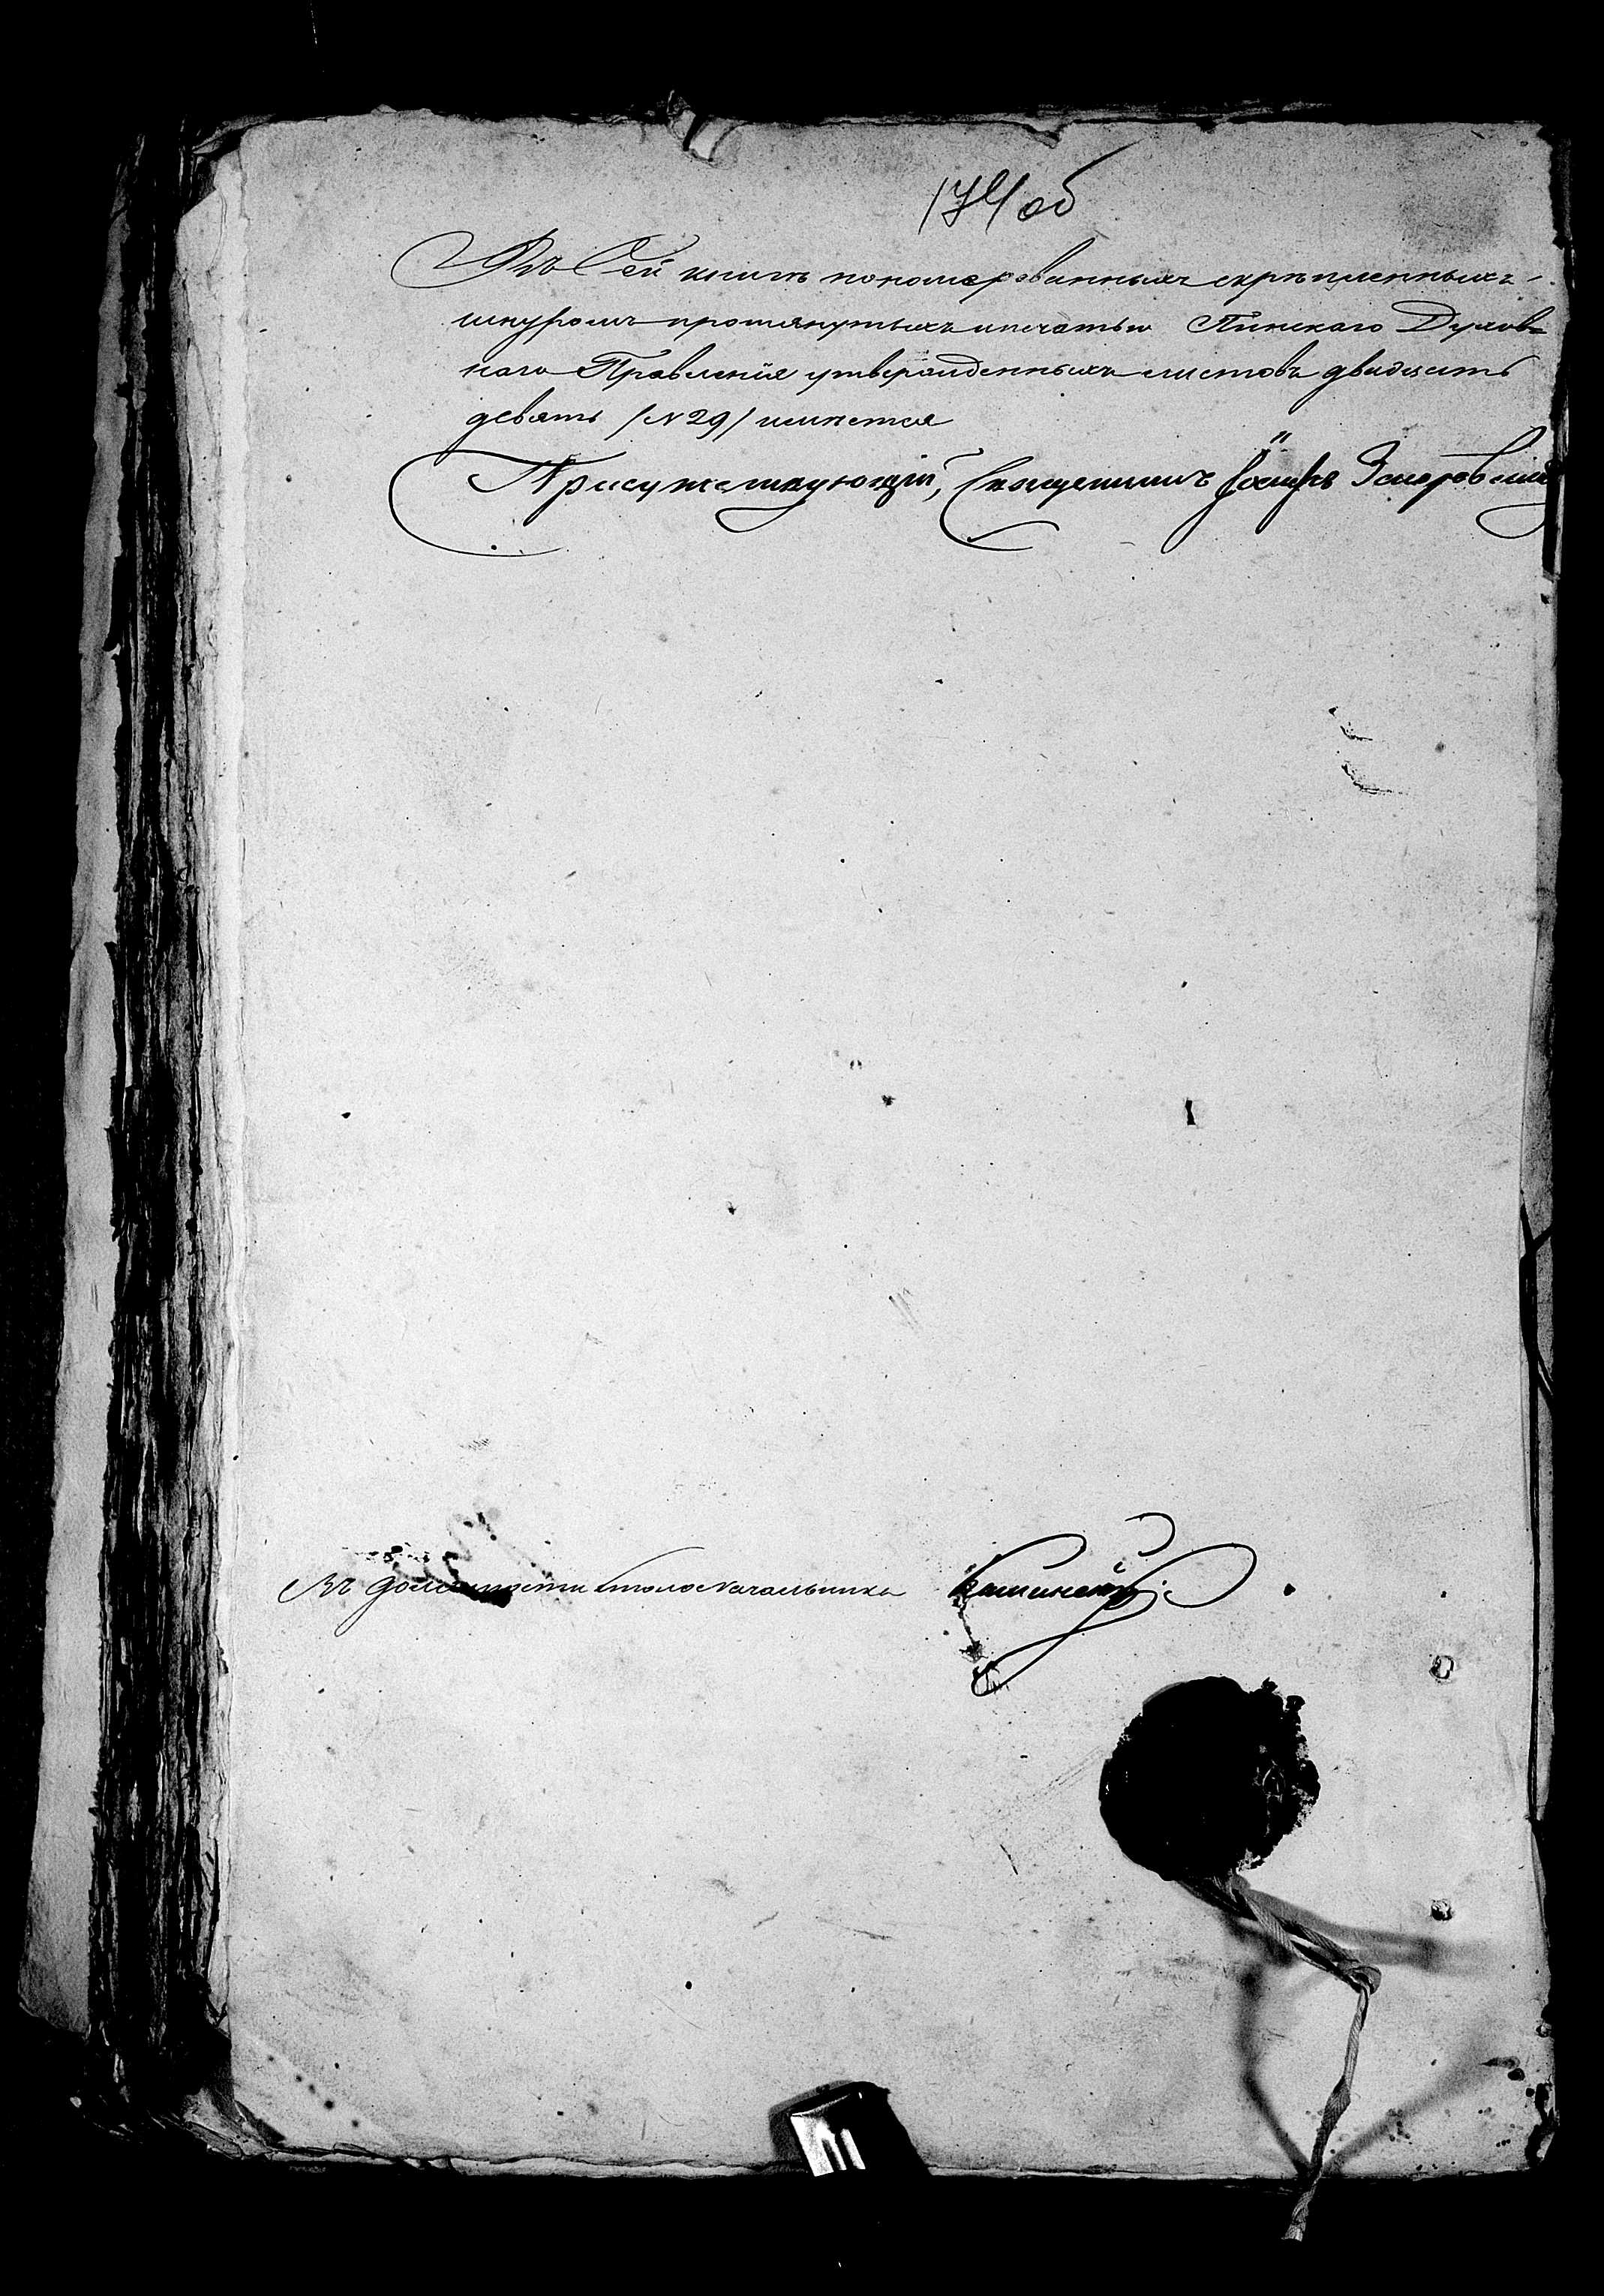 174 об
Въ Сей книгѣ пономерованныхъ скрѣпленныхъ
шнуромъ протянутыхъ и печатью Пинскаго Духов=
наго Правленія утвержденныхъ листовъ двадцать
девять /N 29/ имѣется
Присутствующій, Священникъ Іосифъ
Въ должности столоначальника